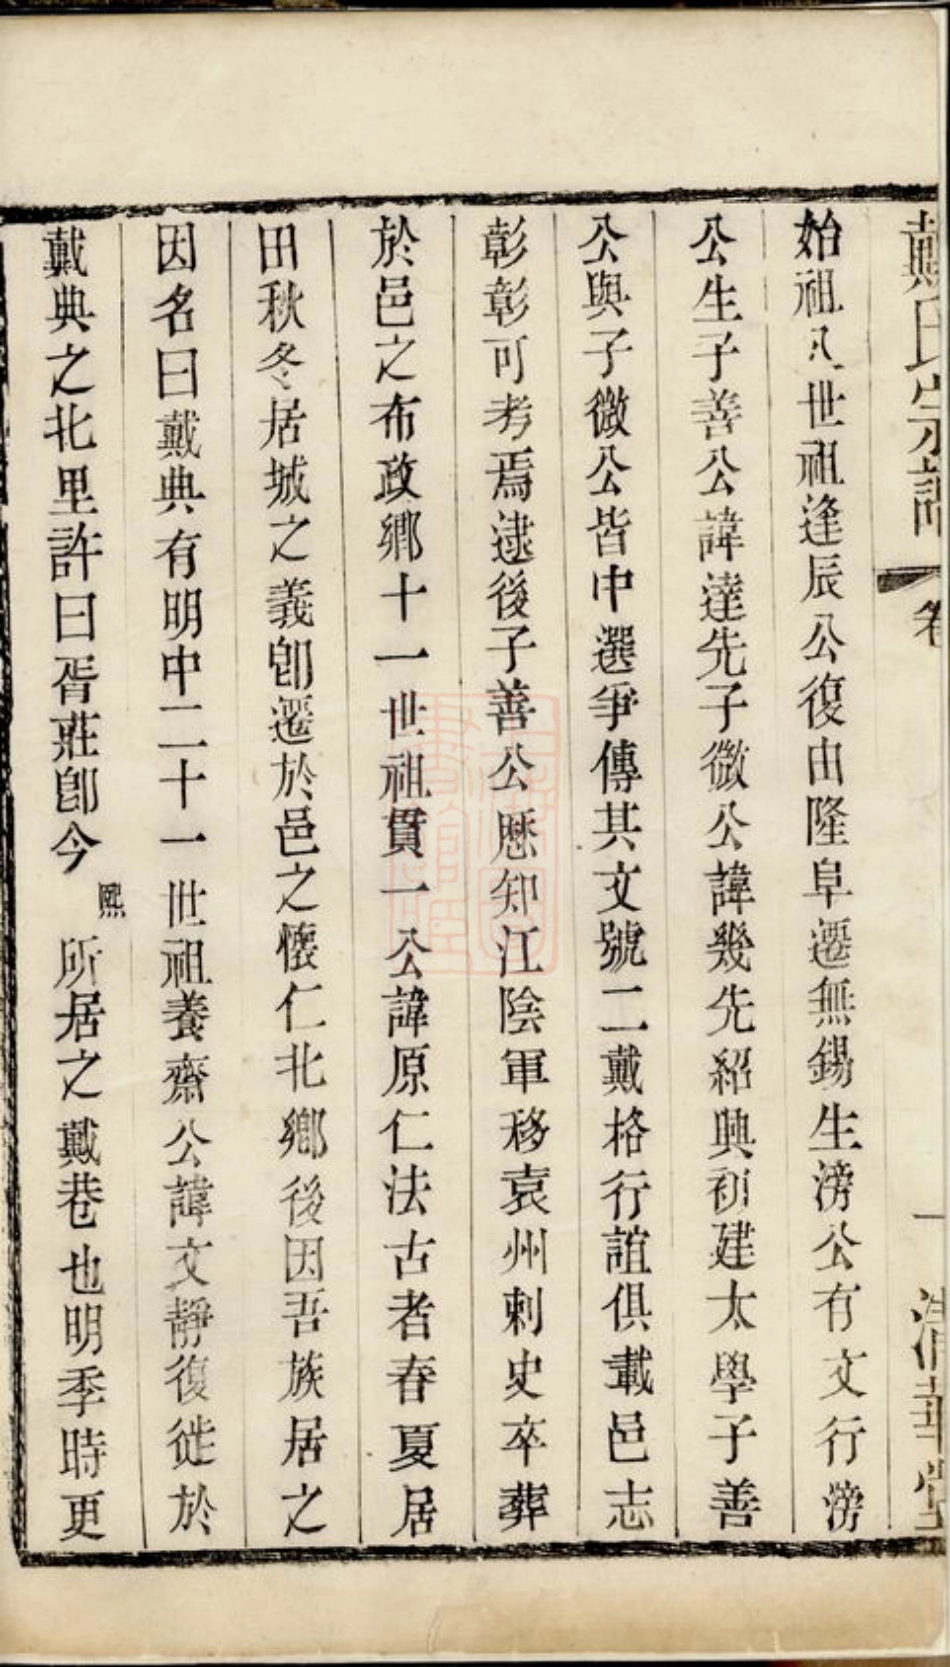 戴氏宗譜
卷
一
清華堂
始祖八世祖逢辰公復由隆阜遷無錫生滂公有文行滂
公生子善公諱達先子微公諱幾先紹興初建太學子善
公與子微公皆中選爭傳其文號二戴格行誼俱載邑志
彰彰可考焉逮後子善公歷知江陰軍移袁州刺史卒葬
於邑之布政鄉十一世祖貫一公諱原仁法古者春夏居
田秋冬居城之義卽遷於邑之懷仁北鄉後因吾族居之
因名曰戴典有明中二十一世祖養齋公諱文靜復徙於
戴典之北里許曰胥莊卽今熙所居之戴巷也明季時更